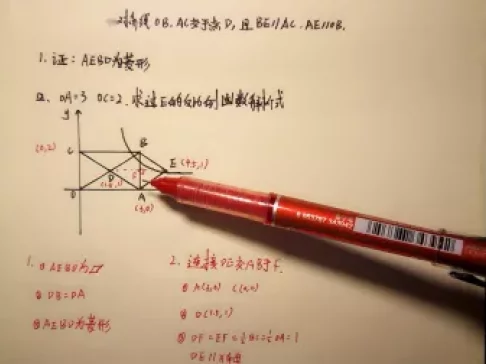 对角线OB、AC交于点D,且BE∥AC、AE∥OB.
1.证:AEBD为菱形
OA=3 OC=2.求过E的反比例函数解析式
y
(0,2) C B
E (4.5,1)
D
(1.5,1)
A
(3,0)
1.①AEBD为▱
②DB=DA
③AEBD为菱形
2.连接DE交AB于F.
① A(3,0) C(0,2)
② D(1.5,1)
③ DF=EF=½BC=½OA=
DE∥x轴